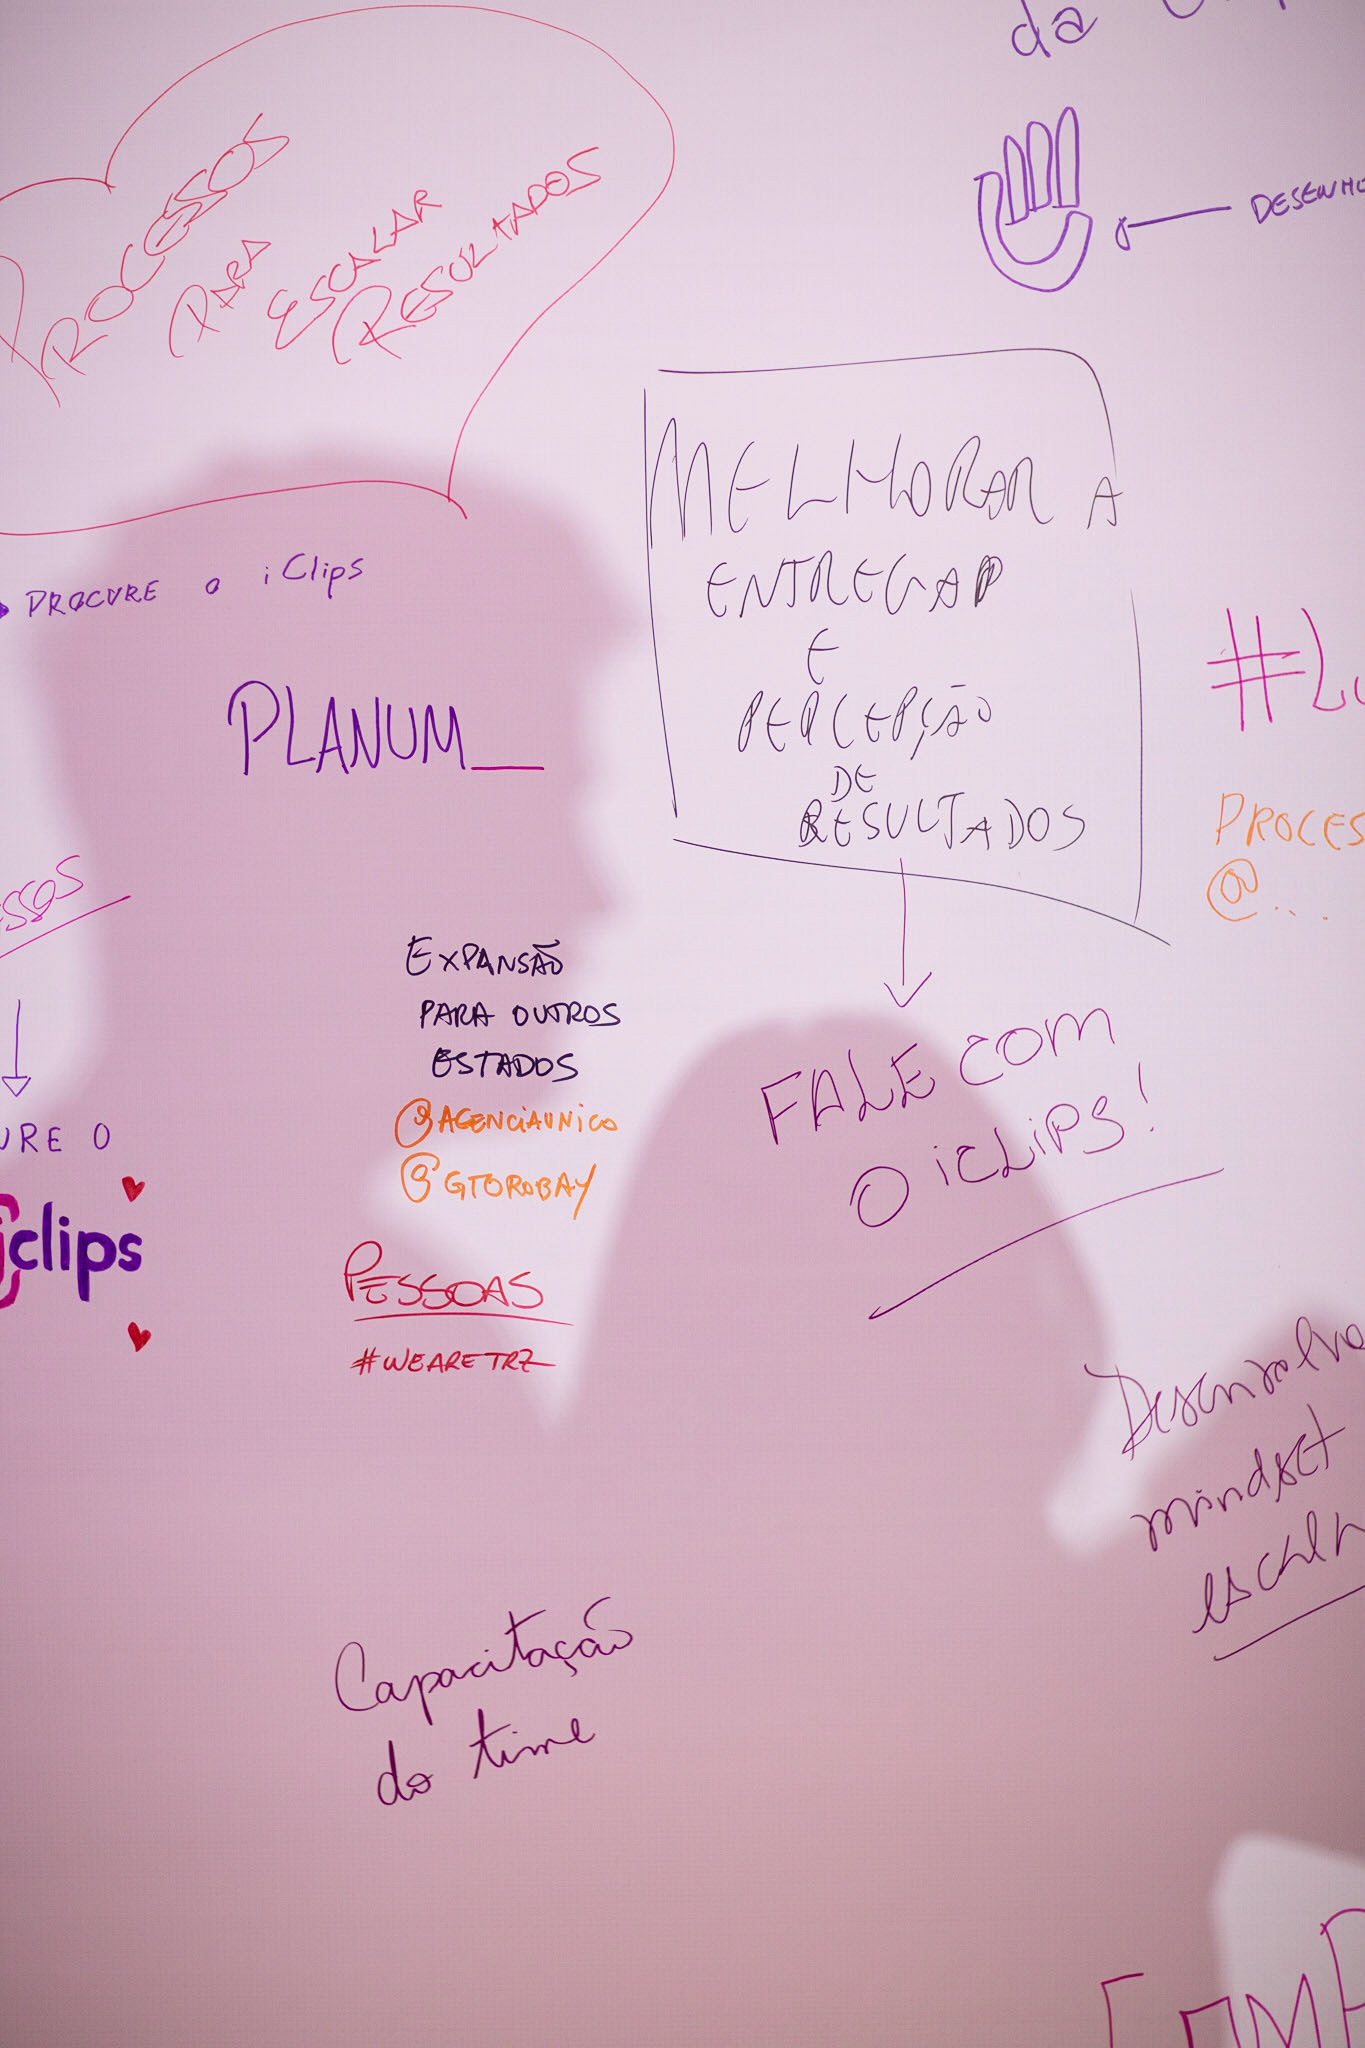 da
PROCESSOS
PARA
ESCALAR
RESULTADOS
DESENHO
MELHORAR A
ENTREGAP
E
PERCEPÇÃO
DE
RESULTADOS
PROCURE O iClips
PLANUM_
#LU
PROCES
@...
ESSOS
EXPANSÃO
PARA OUTROS
ESTADOS
@AGENCIAUNICO
@GTOROBAY
FALE COM
O iCLiPS!
URE O
iclips
PESSOAS
#WEARETRZ
Desenvolve
mindset
Capacitação
do time
COMP